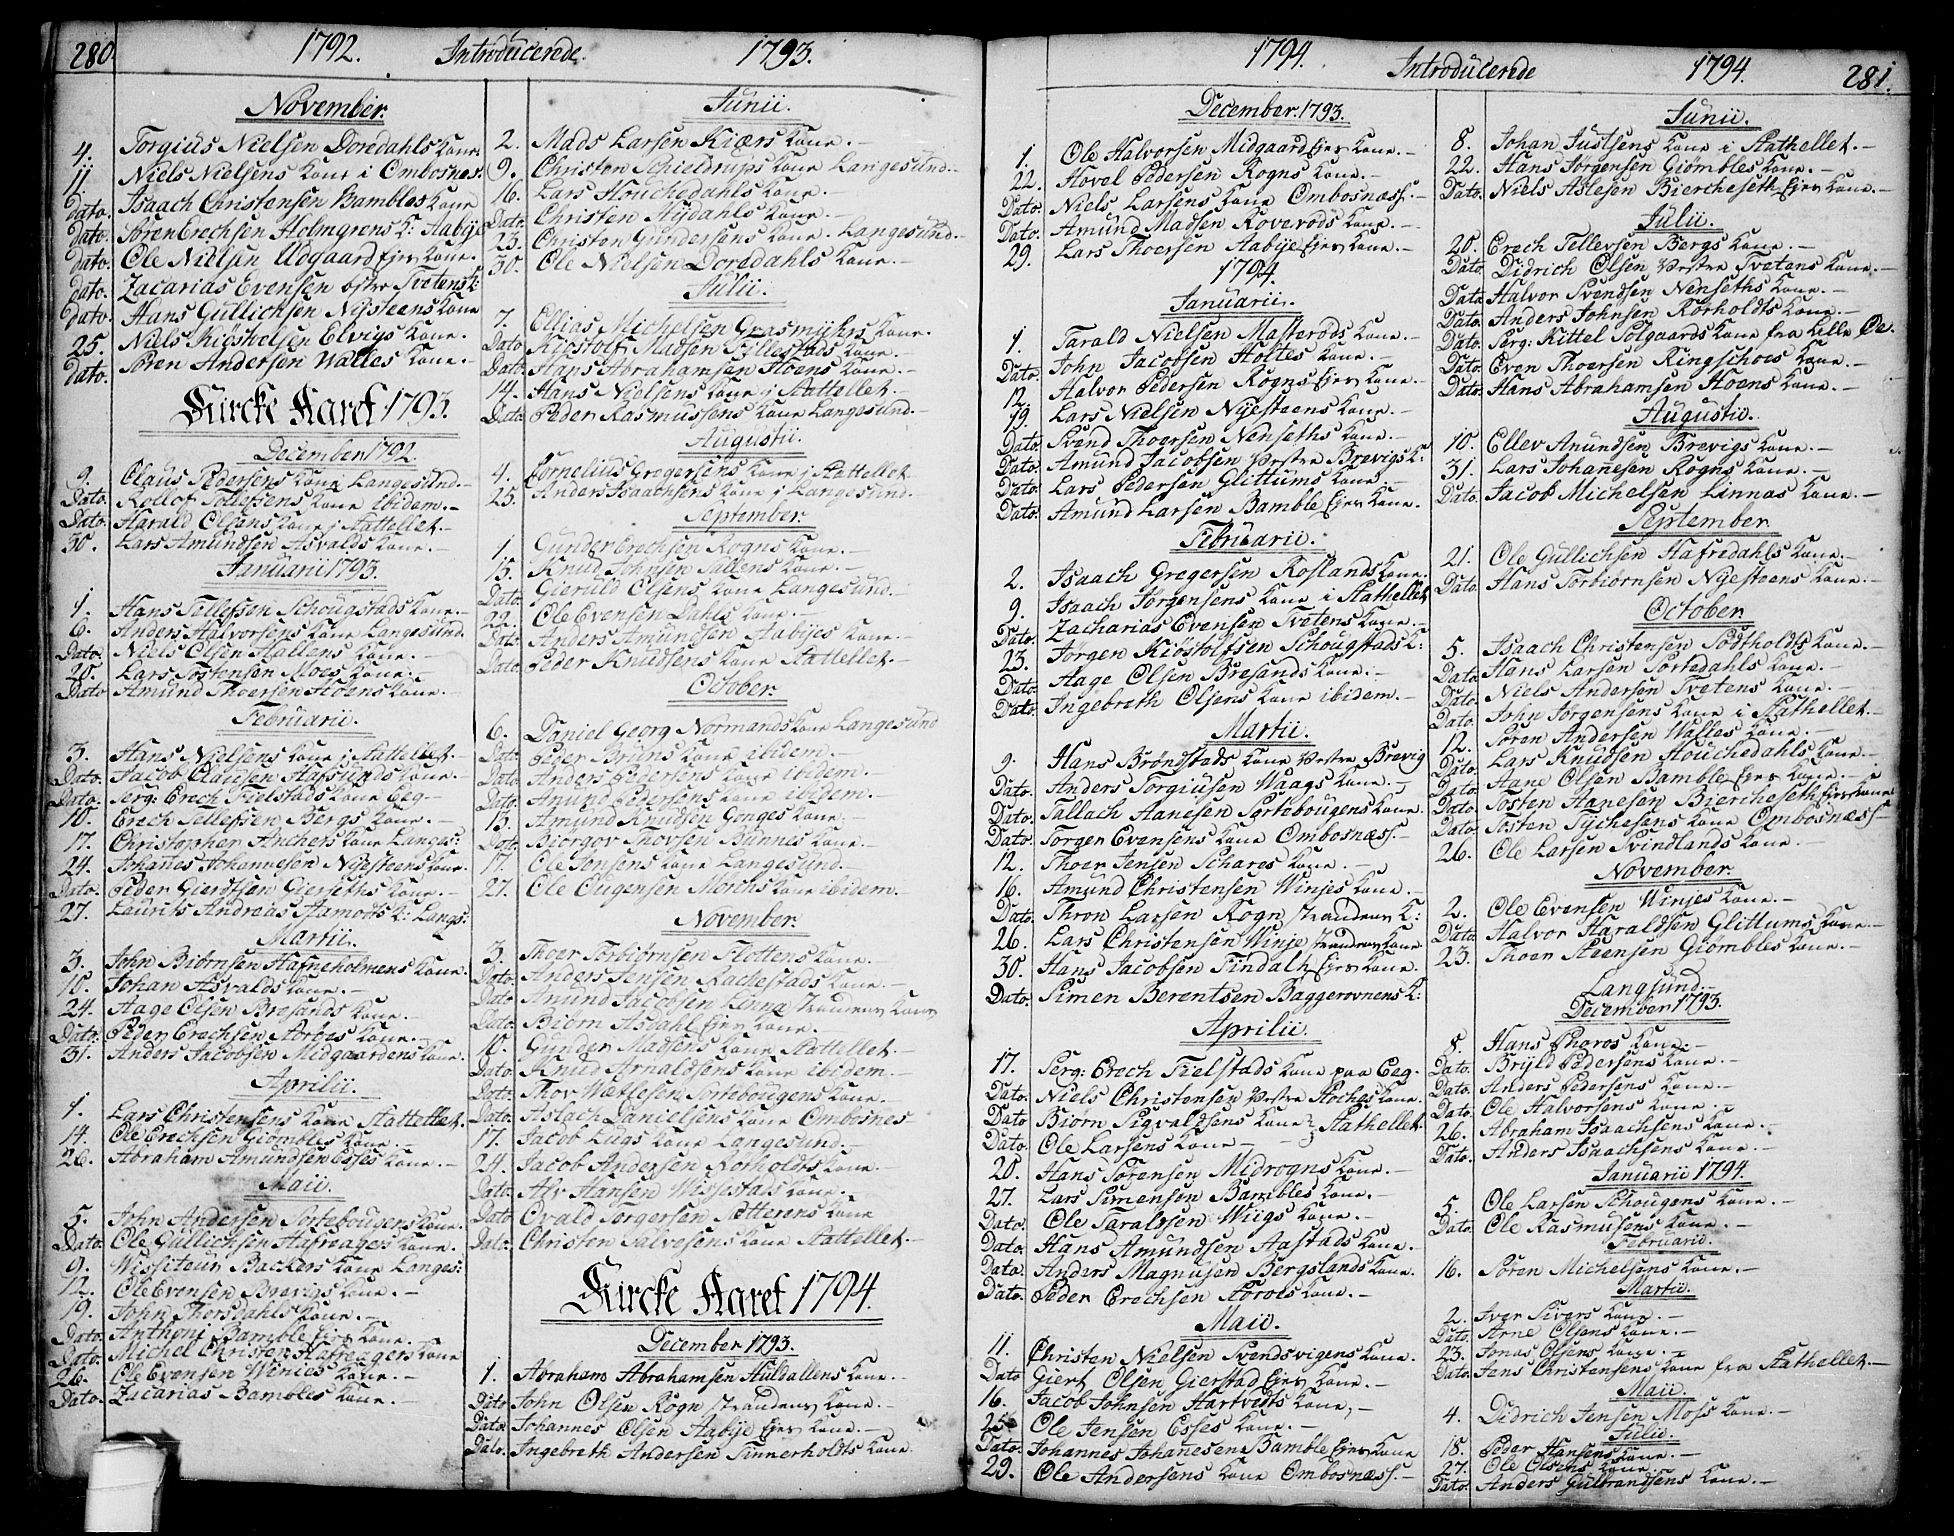 280. 1792. Introducerede. 1793.
November.
4. Torgius Nielsen Dordahls Kone
11. Niels Nielsens Kone i Ombosnes.
dato. Isaach Christensen Bambles Kone
dato. Søren Erechsen Holmgrens K: Aabije
dato. Ole Nielsen Udgaard Ejer Kone.
dato. Zacarias Evensen østre Tvetens K:
dato. Hans Gullichsen Nijsteens Kone
25. Niels Kiøstvelsen Elvigs Kone.
dato. Søren Andersen Walles Kone.
Kircke Aaret 1793.
December 1792.
9. Claus Pedersens Kone Langesund.
Dato. Rollof Tollefsens Kone ibidem.
Dato. Harald Olsens Kone i Stattellet.
30. Lars Amundsen Asvalds Kone.
Januarii 1793.
1. Hans Tellefsen Schougstads Kone.
6. Anders Halvorsens Kone Langesund.
Dato. Niels Olsen Hallens Kone.
20. Lars Tostensen Moes Kone.
Dato Amund Thoersen Hoens Kone.
Februarii.
3. Hans Nielsens Kone i Stattellet.
Dato. Jacob Clausen Hafsunds Kone.
Dato. Serg: Erech Fielstads Kone Eeg
10. Erech Tellefsen Bergs Kone.
17. Christopher Anchers Kone Langes:
24. Johanes Johannesen Nijesteens Kone.
Dato. Peder Gierdtsen Gierseths Kone.
27. Laurits Andreas Aamodts K: Langs:
Martii.
3. John Biørnsen Hafneholmens Kone.
10. Johan Asvalds Kone.
24. Aage Olsen Bresands Kone.
Dato. Peder Erechsen Aaroes Kone.
31. Anders Jacobsen Midgaardens Kone.
Aprilii.
1. Lars Christensens Kone Stattellet.
14. Ole Erechsen Giømbles Kone.
26. Abraham Amundsen Esses Kone.
Maii.
5. John Andersen Sortebougens Kone.
Dato. Ole Gullichsen Hafreagers Kone.
9. Wissiteur Backers Kone Langes:
12. Ole Evensen Brevigs Kone.
19. John Thorsdahls Kone.
Dato. Anthoni Bamble Ejer Kone.
Dato. Michel Christen Hafreagers Kone
26. Ole Evensen Winies Kone.
Dato. Zacarias Bambles Kone.
Junii.
2. Mads Larsen Kiærs Kone.
9. Christen Schieldrups Kone Langesund.
16. Lars Houchedahls Kone.
Dato. Christen Aijdahls Kone.
23. Christen Gundersens Kone. Langesund.
30. Ole Nielsen Dordahls Kone.
Julii.
7. Ellias Michelsen Grasmyhrs Kone.
Dato Kiøstolf Madsen Tillestads Kone.
Dato. Hans Abrahamsen Hoens Kone.
14. Hans Nielsens Kone i Stattellet.
Dato Peder Rasmussens Kone Langesund.
Augustii.
4. Cornelius Gregersens Kone i Stattellet
25. Anders Isaachsens Kone i Langesund.
September.
1. Gunder Erechsen Rogns Kone.
15. Knud Johnsen Kone.
Dato: Gieruld Olsens Kone Langesund.
22. Ole Evensen Dahls Kone.
Dato. Anders Amundsen Aabijes Kone.
Dato Peder Knudsens Kone Stattellet.
October.
6. Daniel Georg Normands Kone Langesund
Dato. Peder Bruns Kone ibidem.
Dato Anders Pedersens Kone ibidem.
Dato. Anund Pedersens Kone ibidem.
13. Amund Knudsen Gonges Kone.
Dato Biørgor Thorsen Bannes Kone.
17. Ole Jensens Kone Langesund.
27. Ole Ougensen Morchs Kone ibidem.
November.
3. Thoer Torbiørnsen Flottens Kone.
Dato. Anders Jensen Rachestads Kone.
Dato Amund Jacobsen Linna Strandens Kone
Dato. Biørn Asdahl Ejer Kone.
10. Gunder Madsens Kone Stattellet.
Dato. Knud Arnaldsens Kone ibidem.
Dato. Thor Wætlesen Sortebougens Kone.
Dato: Aslach Danielsens Kone Ombosnes
17. Jacob Lugs Kone Langesund.
24. Jacob Andersen Rørholdts Kone.
Dato: Alv Hansen Wissestads Kone.
Dato Ovald Torgersen Sætterens Kone
Dato: Christen Salvesens Kone Stattellet.
Kircke Aaret 1794.
December 1793.
1. Abraham Abrahamsen Huldallens Kone.
Dato John Olsen Rogn Strandens Kone.
Dato. Johannes Olsen Aabije Ejer Kone.
Dato. Ingebreth Andersen Tinnerholdts Kone.
1794. Introducerede 1794. 281.
December 1793.
1. Ole Halvorsen Midgaard Ejer Kone.
22. Hovel Pedersen Rogns Kone.
Dato. Niels Larsens Kone Ombosnæss.
Dato. Amund Madsen Roverods Kone.
29. Lars Thoersen Aabije Ejer Kone.
1794.
Januarii.
1. Tarald Nielsen Masterøds Kone.
Dato. John Jacobsen Holtes Kone.
12. Halvor Pedersen Rogns Ejer Kone.
19. Lars Nielsen Nijesteens Kone.
Dato. Svend Thoersen Nenseths Kone.
Dato. Amund Jacobsen Vestre Brevigs K:
Dato. Lars Pedersen Glittums Kone.
Dato. Amund Larsen Bamble Ejer Kone.
Februarii.
2. Isaach Gregersen Roslands Kone.
9. Isaach Jørgensens Kone i Stathellet
Dato. Zacharias Evensen Tvetens Kone.
23. Jørgen Kiøstolfsen Schougstads K:
Dato. Aage Olsen Bresands Kone.
Dato. Ingebreth Olsens Kone ibidem.
Martii.
9. Hans Brøndstads Kone Vestre Brevig
Dato. Anders Torgiusen Waags Kone.
Dato. Tallach Hanesen Sortebougens Kone.
Dato. Torger Evensens Kone Ombosnæss.
12. Thoer Jensen Schares Kone.
16. Amund Christensen Winjes Kone.
Dato. Thron Larsen Rogn Strandens K:
26. Lars Christensen Winje Strandens Kone
30. Hans Jacobsen Findahl Ejer Kone.
Dato. Simen Berentsen Baggerovnens K:
Aprilii.
17. Serg: Erech Fielstads Kone paa Eeg.
Dato. Niels Christensen Vestre Stoches Kone.
Dato Biørn Sigvaldsens Kone Stathellet.
Dato. Ole Larsens Kone
20. Hans Sørensen Midrogns Kone.
27. Lars Simensen Bambles Kone.
Dato. Ole Taraldsen Wiigs Kone.
Dato. Hans Amundsen Aastads Kone.
Dato. Anders Magnusen Bergslands Kone.
Dato. Peder Erechsen Aaroes Kone.
Maii.
11. Christen Nielsen Svendsvigens Kone.
Dato Giert Olsen Gierstad Ejer Kone.
16. Jacob Johnsen Hartvedts Kone.
25 Ole Jensen Esses Kone.
Dato. Johannes Johanesens Bamble Ejer Kone
29. Ole Andersens Kone Ombosnæss.
Junii.
8. Johan Justsens Kone i Stathellet.
22. Hans Jørgensen Giømbles Kone.
Dato. Niels Aslesen Biercheseth Ejer Kone.
Julii.
20. Erech Tellevsen Bergs Kone.
Dato. Didrich Olsen Vestre Tvetens Kone.
Dato Halvor Svendsen Nenseths Kone.
Dato. Anders Johnsen Rørholdts Kone.
Dato. Serg: Kittel Solgaards Kone fra Lille Øe.
Dato. Even Thoersen Ringschoes Kone.
Dato. Hans Abrahamsen Hoens Kone.
Augustii.
10. Ellev Anundsen Brevigs Kone.
31. Lars Johanesen Rogns Kone.
Dato. Jacob Michelsen Linnas Kone.
September
21. Ole Gullichsen Hafredahls Kone.
Dato. Hans Torbiørnsen Nijesteens Kone.
October
5. Isaach Christensen Podtholdts Kone.
Dato. Hans Larsen Sortedahls Kone.
Dato. Niels Andersen Tvetens Kone.
Dato. John Jørgensens Kone i Stathellet.
12. Søren Andersen Walles Kone.
Dato. Lars Knudsen Houchedahls Kone.
Dato. Hane Olsen Bamble Ejer Kone.
Dato. Tosten Hanesen Biercheseth Ejers Kone
Dato. Tosten Tychesens Kone Ombosnæss.
26. Ole Larsen Svindlands Kone.
November.
2. Ole Evensen Winjes Kone.
Dato. Halvor Haraldsen Glittums Kone.
23. Thoer Staensen Giømbles Kone.
Langsund.
December 1793.
8. Hans Thoros Kone.
Dato. Brijld Pedersens Kone.
Dato. Anders Pedersens Kone.
Dato. Ole Halvorsens Kone.
26. Abraham Isaachsens Kone.
Dato. Anders Isaachsens Kone.
Januarii 1794.
5. Ole Larsen Schougens Kone.
Dato. Ole Rasmusens Kone.
Februarii.
16. Søren Michelsens Kone.
Martii.
2. Iver Sivers Kone.
Dato. Arne Olsens Kone.
23. Jonas Olsens Kone.
Dato. Jens Christensens Kone fra Stathellet.
Maii.
4. Didrich Jensen Moss Kone.
Julii.
18. Peder Hansens Kone.
27. Ole Olsens Kone.
Dato. Anders Gulbrandsens Kone.